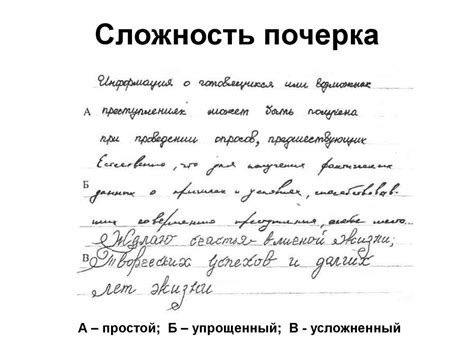 Сложность почерка
Информация о готовящихся или возможных
А преступлениях может быть получена
при проведении опросов, предшествующих
Естественно, что для получения фактических
Б данных о причинах и условиях, способствовав-
ших совершению преступления, особое место...
Желаю счастья в личной жизни;
В Творческих успехов и долгих
лет жизни
А – простой; Б – упрощенный; В - усложненный